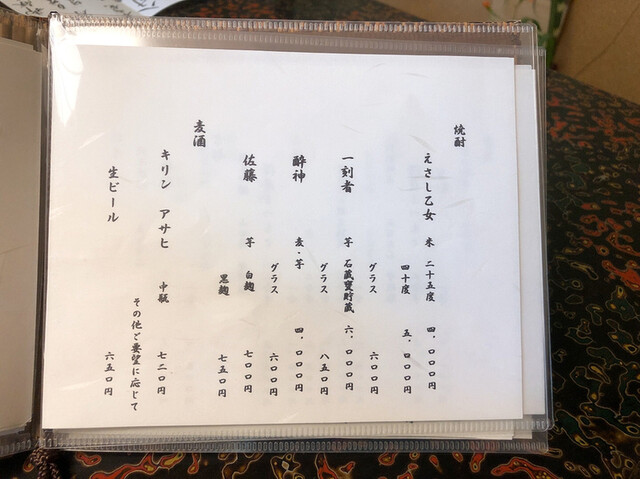 焼酎
えさし乙女 米 二十五度 四、〇〇〇円
四十度 五、〇〇〇円
グラス 六〇〇円
一刻者 芋 石蔵甕貯蔵 六、〇〇〇円
グラス 八五〇円
酔神 麦・芋 四、〇〇〇円
グラス 六〇〇円
佐藤 芋 白麹 七〇〇円
黒麹 七五〇円
麦酒
キリン アサヒ 中瓶 七二〇円
その他ご要望に応じて
生ビール 六五〇円